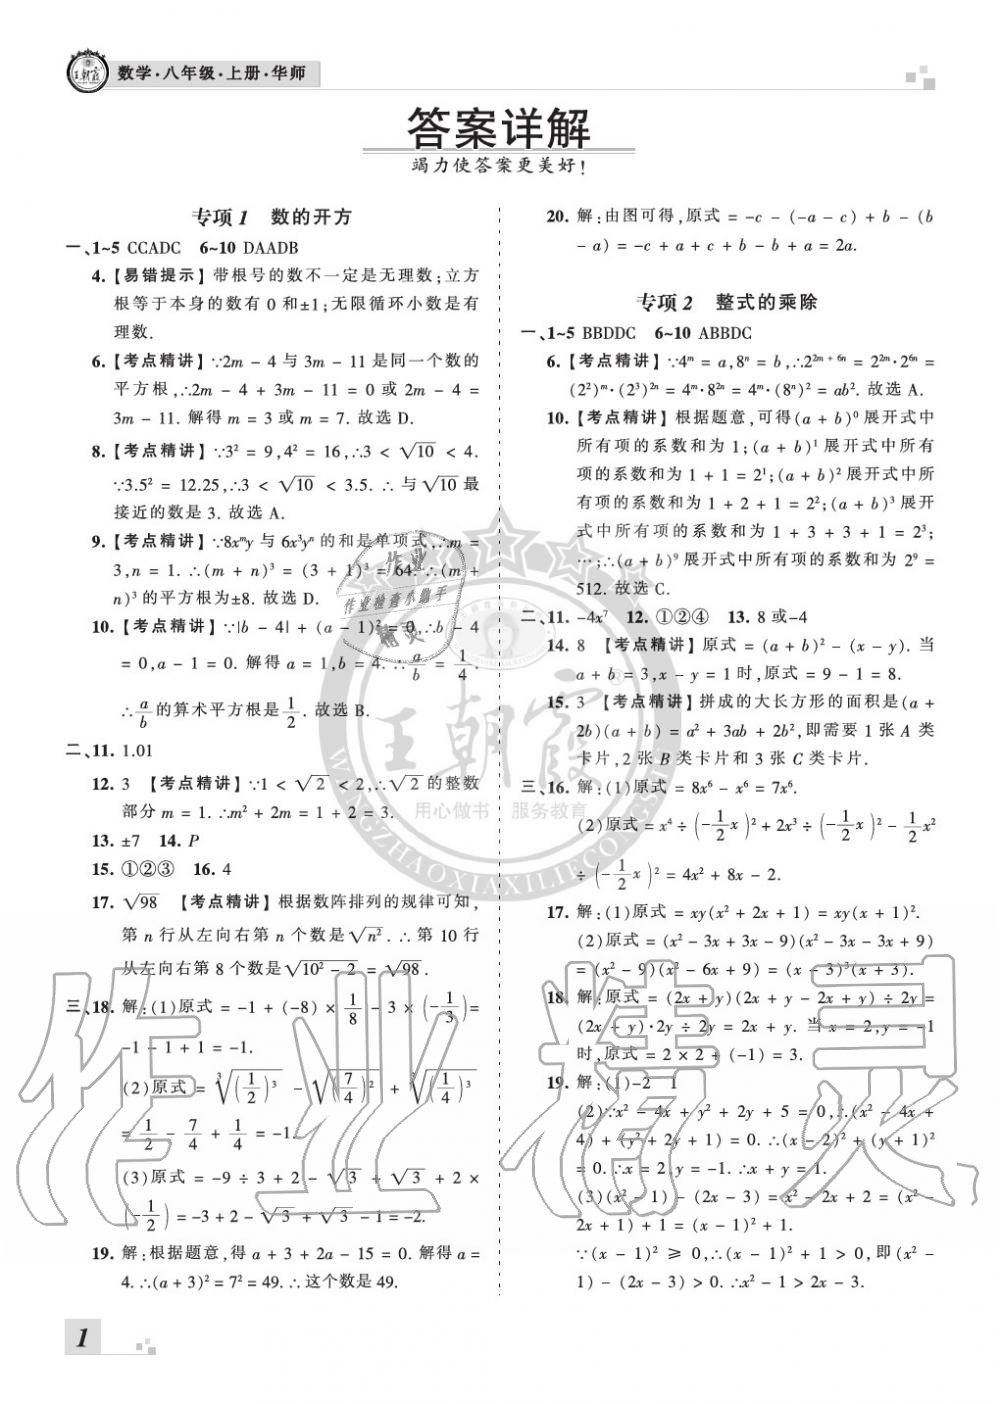 王朝霞
数学·八年级·上册·华师
答案详解
竭力使答案更美好!
专项1 数的开方
一、1~5 CCADC 6~10 DAADB
4.【易错提示】带根号的数不一定是无理数;立方
根等于本身的数有 0 和±1;无限循环小数是有
理数.
6.【考点精讲】∵2m − 4 与 3m − 11 是同一个数的
平方根,∴2m − 4 + 3m − 11 = 0 或 2m − 4 =
3m − 11. 解得 m = 3 或 m = 7. 故选 D.
8.【考点精讲】∵3² = 9,4² = 16,∴3 < √10 < 4.
∵3.5² = 12.25,∴3 < √10 < 3.5. ∴与√10最
接近的数是 3. 故选 A.
9.【考点精讲】∵8xᵐy 与 6x³yⁿ 的和是单项式,∴m =
3,n = 1. ∴(m + n)³ = (3 + 1)³ = 64. ∴(m +
n)³的平方根为±8. 故选 D.
10.【考点精讲】∵|b − 4| + (a − 1)² = 0,∴b − 4
= 0,a − 1 = 0. 解得 a = 1,b = 4. ∴a/b = 1/4.
∴a/b的算术平方根是1/2. 故选 B.
二、11. 1.01
12. 3 【考点精讲】∵1 < √2 < 2,∴√2的整数
部分 m = 1. ∴m² + 2m = 1 + 2 = 3.
13. ±7 14. P
15. ①②③ 16. 4
17. √98 【考点精讲】根据数阵排列的规律可知,
第 n 行从左向右第 n 个数是√n². ∴第 10 行
从左向右第 8 个数是√(10² − 2) = √98.
三、18. 解:(1)原式 = −1 + (−8) × 1/8 − 3 × (−1/3)=
−1 − 1 + 1 = −1.
(2)原式 = ∛(1/2)³ − √(7/4)² + ∛(1/4)³
= 1/2 − 7/4 + 1/4 = −1.
(3)原式 = −9 ÷ 3 + 2 − √3 + √3 + 2 ×
(−1/2) = −3 + 2 − √3 + √3 − 1 = −2.
19. 解:根据题意,得 a + 3 + 2a − 15 = 0. 解得 a =
4. ∴(a + 3)² = 7² = 49. ∴这个数是 49.
20. 解:由图可得,原式 = −c − (−a − c) + b − (b
− a) = −c + a + c + b − b + a = 2a.
专项2 整式的乘除
一、1~5 BBDDC 6~10 ABBDC
6.【考点精讲】∵4ᵐ = a,8ⁿ = b,∴2²ᵐ⁺⁶ⁿ = 2²ᵐ·2⁶ⁿ =
(2²)ᵐ·(2³)²ⁿ = 4ᵐ·8²ⁿ = 4ᵐ·(8ⁿ)² = ab². 故选 A.
10.【考点精讲】根据题意,可得(a + b)⁰展开式中
所有项的系数和为 1;(a + b)¹展开式中所有
项的系数和为 1 + 1 = 2¹;(a + b)²展开式中所
有项的系数和为 1 + 2 + 1 = 2²;(a + b)³展开
式中所有项的系数和为 1 + 3 + 3 + 1 = 2³;
…;∴(a + b)⁹展开式中所有项的系数和为 2⁹ =
512. 故选 C.
二、11. −4x⁷ 12. ①②④ 13. 8 或−4
14. 8 【考点精讲】原式 = (a + b)² − (x − y). 当
a + b = 3,x − y = 1 时,原式 = 9 − 1 = 8.
15. 3 【考点精讲】拼成的大长方形的面积是(a +
2b)(a + b) = a² + 3ab + 2b²,即需要 1 张 A 类
卡片,2 张 B 类卡片和 3 张 C 类卡片.
三、16. 解:(1)原式 = 8x⁶ − x⁶ = 7x⁶.
(2)原式 = x⁴ ÷ (−1/2x)² + 2x³ ÷ (−1/2x)² − 1/2x²
÷ (−1/2x)² = 4x² + 8x − 2.
17. 解:(1)原式 = xy(x² + 2x + 1) = xy(x + 1)².
(2)原式 = (x² − 3x + 3x − 9)(x² − 3x − 3x + 9)
= (x² − 9)(x² − 6x + 9) = (x − 3)³(x + 3).
18. 解:原式 = (2x + y)(2x + y − 2x + y) ÷ 2y =
(2x + y)·2y ÷ 2y = 2x + y. 当 x = 2,y = −1
时,原式 = 2 × 2 + (−1) = 3.
19. 解:(1)−2 1
(2)∵x² − 4x + y² + 2y + 5 = 0,∴(x² − 4x +
4) + (y² + 2y + 1) = 0. ∴(x − 2)² + (y + 1)²
= 0. ∴x = 2,y = −1. ∴x + y = 1.
(3)(x² − 1) − (2x − 3) = x² − 2x + 2 = (x² −
2x + 1) + 1 = (x − 1)² + 1.
∵(x − 1)² ≥ 0,∴(x − 1)² + 1 > 0,即(x² −
1) − (2x − 3) > 0. ∴x² − 1 > 2x − 3.
1
王朝霞®
用心做书 服务教育
WANGZHAOXIAXILIECONGSHU
作业
作业检查小助手
精灵
作业精灵